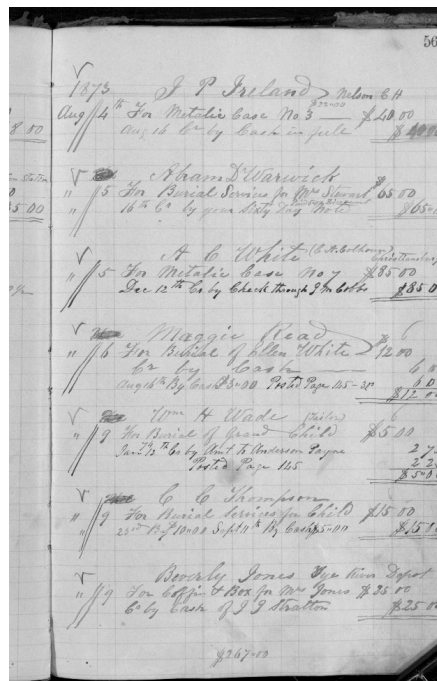 56
1873 J P Ireland Nelson C H
Aug 4th For Metalic Case No. 3 $40.00
Aug 16 Cr by Cash in full $40.00
Abram D Warwick
" 5 For Burial Services for Mrs Stewart $65.00
16th Cr by your Sixty Day Note $65.00
A C White (C A Calhoun) Christiansburg
" 5 For Metalic Case No 7 $85.00
Dec 12th Cr by Check through J M Cobbs $85.0
Maggie Read 6
" 6 For Burial of Ellen White 12.00
Cr by Cash 6 0
Aug 16th By Cash $3.00 Posted Page 145 6 0
$12.00
Wm H Wade
" 9 For Burial of Grand Child $5.00
12th Cr by Amt. to Anderson Payne 2 7
Posted Page 145 2 2
$5.00
C C Thompson
" 9 For Burial Services for Child $15.00
23rd By 10.00 Sept 11th By Cash $5.00 $15.0
Beverly Jones Tye River Depot
" 9 For Coffin & Box for Mrs Jones $25.00
Cr by Cash of J J Stratton $25.00
$267.00
8.00
5.00